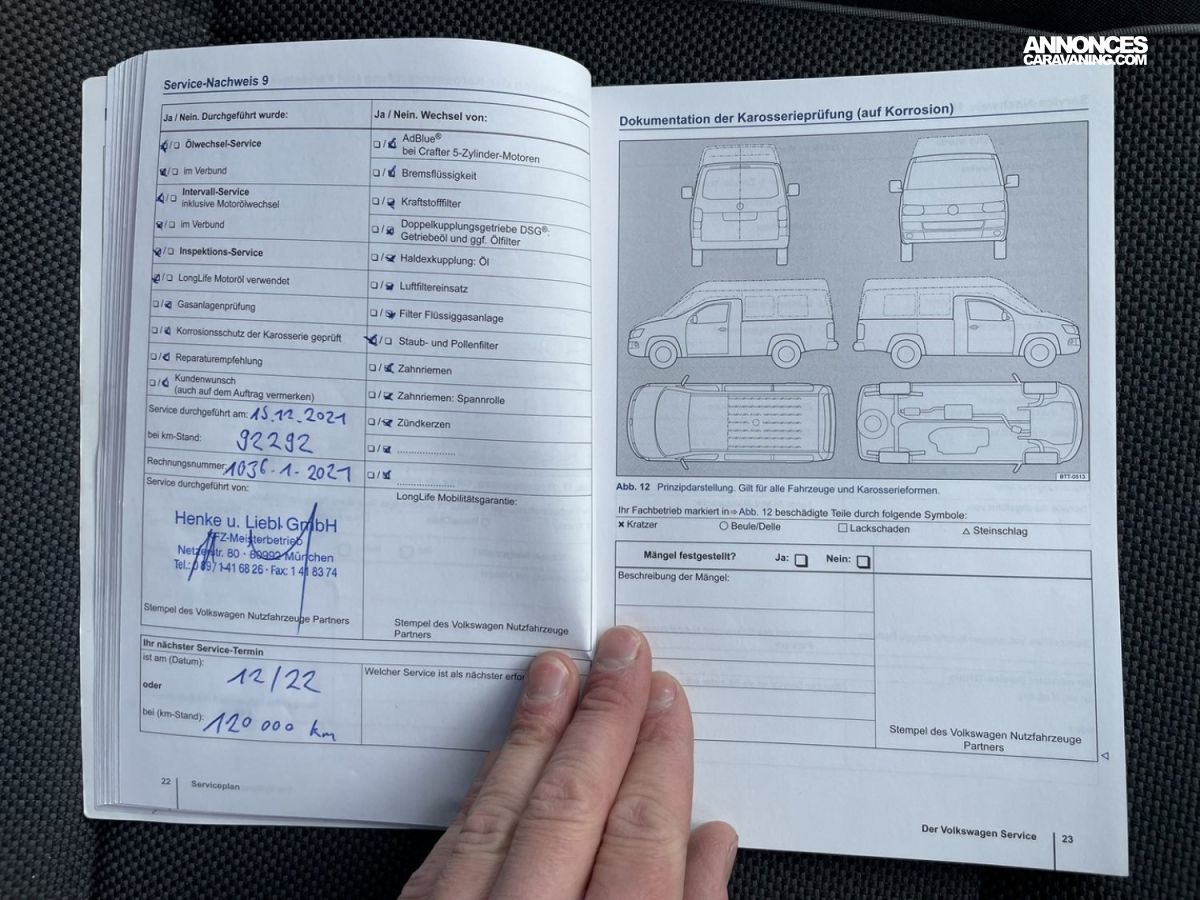 ANNONCES
CARAVANING.COM
Service-Nachweis 9
Ja / Nein. Durchgeführt wurde:
Ölwechsel-Service
im Verbund
Intervall-Service
inklusive Motorölwechsel
im Verbund
Inspektions-Service
LongLife Motoröl verwendet
Gasanlagenprüfung
Korrosionsschutz der Karosserie geprüft
Reparaturempfehlung
Kundenwunsch
(auch auf dem Auftrag vermerken)
Service durchgeführt am: 15.12.2021
bei km-Stand: 92292
Rechnungsnummer: 1036-1-2021
Service durchgeführt von:
Henke u. Liebl GmbH
KFZ-Meisterbetrieb
Netzerstr. 80 · 80992 München
Tel.: 089/1 41 68 26 · Fax: 1 41 83 74
Stempel des Volkswagen Nutzfahrzeuge Partners
Ja / Nein. Wechsel von:
AdBlue®
bei Crafter 5-Zylinder-Motoren
Bremsflüssigkeit
Kraftstofffilter
Doppelkupplungsgetriebe DSG®:
Getriebeöl und ggf. Ölfilter
Haldexkupplung: Öl
Luftfiltereinsatz
Filter Flüssiggasanlage
Staub- und Pollenfilter
Zahnriemen
Zahnriemen: Spannrolle
Zündkerzen
LongLife Mobilitätsgarantie:
Stempel des Volkswagen Nutzfahrzeuge
Partners
Ihr nächster Service-Termin
ist am (Datum): 12/22
oder
bei (km-Stand): 120 000 km
Welcher Service ist als nächster
22 Serviceplan
Dokumentation der Karosserieprüfung (auf Korrosion)
BTT-0513
Abb. 12 Prinzipdarstellung. Gilt für alle Fahrzeuge und Karosserieformen.
Ihr Fachbetrieb markiert in ⇒ Abb. 12 beschädigte Teile durch folgende Symbole:
× Kratzer ○ Beule/Delle □ Lackschaden △ Steinschlag
Mängel festgestellt? Ja: □ Nein: □
Beschreibung der Mängel:
Stempel des Volkswagen Nutzfahrzeuge
Partners
Der Volkswagen Service 23